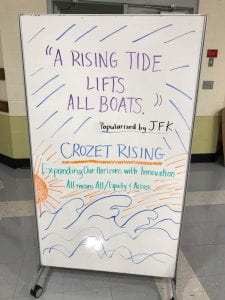 "A RISING TIDE
LIFTS
ALL BOATS."
Popularized by JFK
CROZET RISING
Expanding Our Horizons with Innovation
All means All/Equity & Access